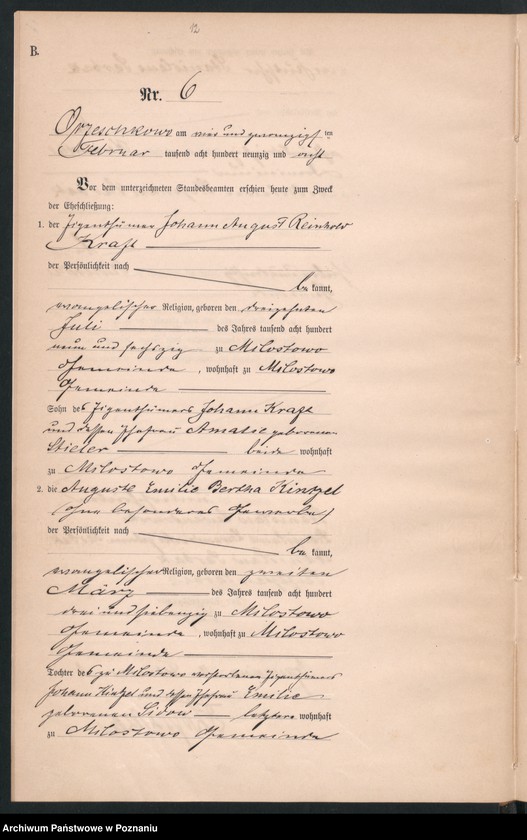 12
B.
Nr. 6
Orzeschkowo am vier und zwanzigsten
Februar tausend acht hundert neunzig und acht
Vor dem unterzeichneten Standesbeamten erschien heute zum Zweck
der Eheschließung:
1. der Eigenthümer Johann August Reinhold
Kraft
der Persönlichkeit nach
be kannt,
evangelischer Religion, geboren den dreizehnten
Juli des Jahres tausend acht hundert
neun und sechszig zu Milostowo
Gemeinde, wohnhaft zu Milostowo
Gemeinde
Sohn des Eigenthümers Johann Kraft
und dessen Ehefrau Amalie geborenen
Stieler beide wohnhaft
zu Milostowo Gemeinde
2. die Auguste Emilie Bertha Kintzel
(ohne besonderes Gewerbe)
der Persönlichkeit nach
be kannt,
evangelischer Religion, geboren den zweiten
März des Jahres tausend acht hundert
drei und siebenzig zu Milostowo
Gemeinde, wohnhaft zu Milostowo
Gemeinde
Tochter des zu Milostowo verstorbenen Eigenthümers
Johann Kintzel und dessen Ehefrau Emilie
geborenen Sidow letztere wohnhaft
zu Milostowo Gemeinde
Archiwum Państwowe w Poznaniu